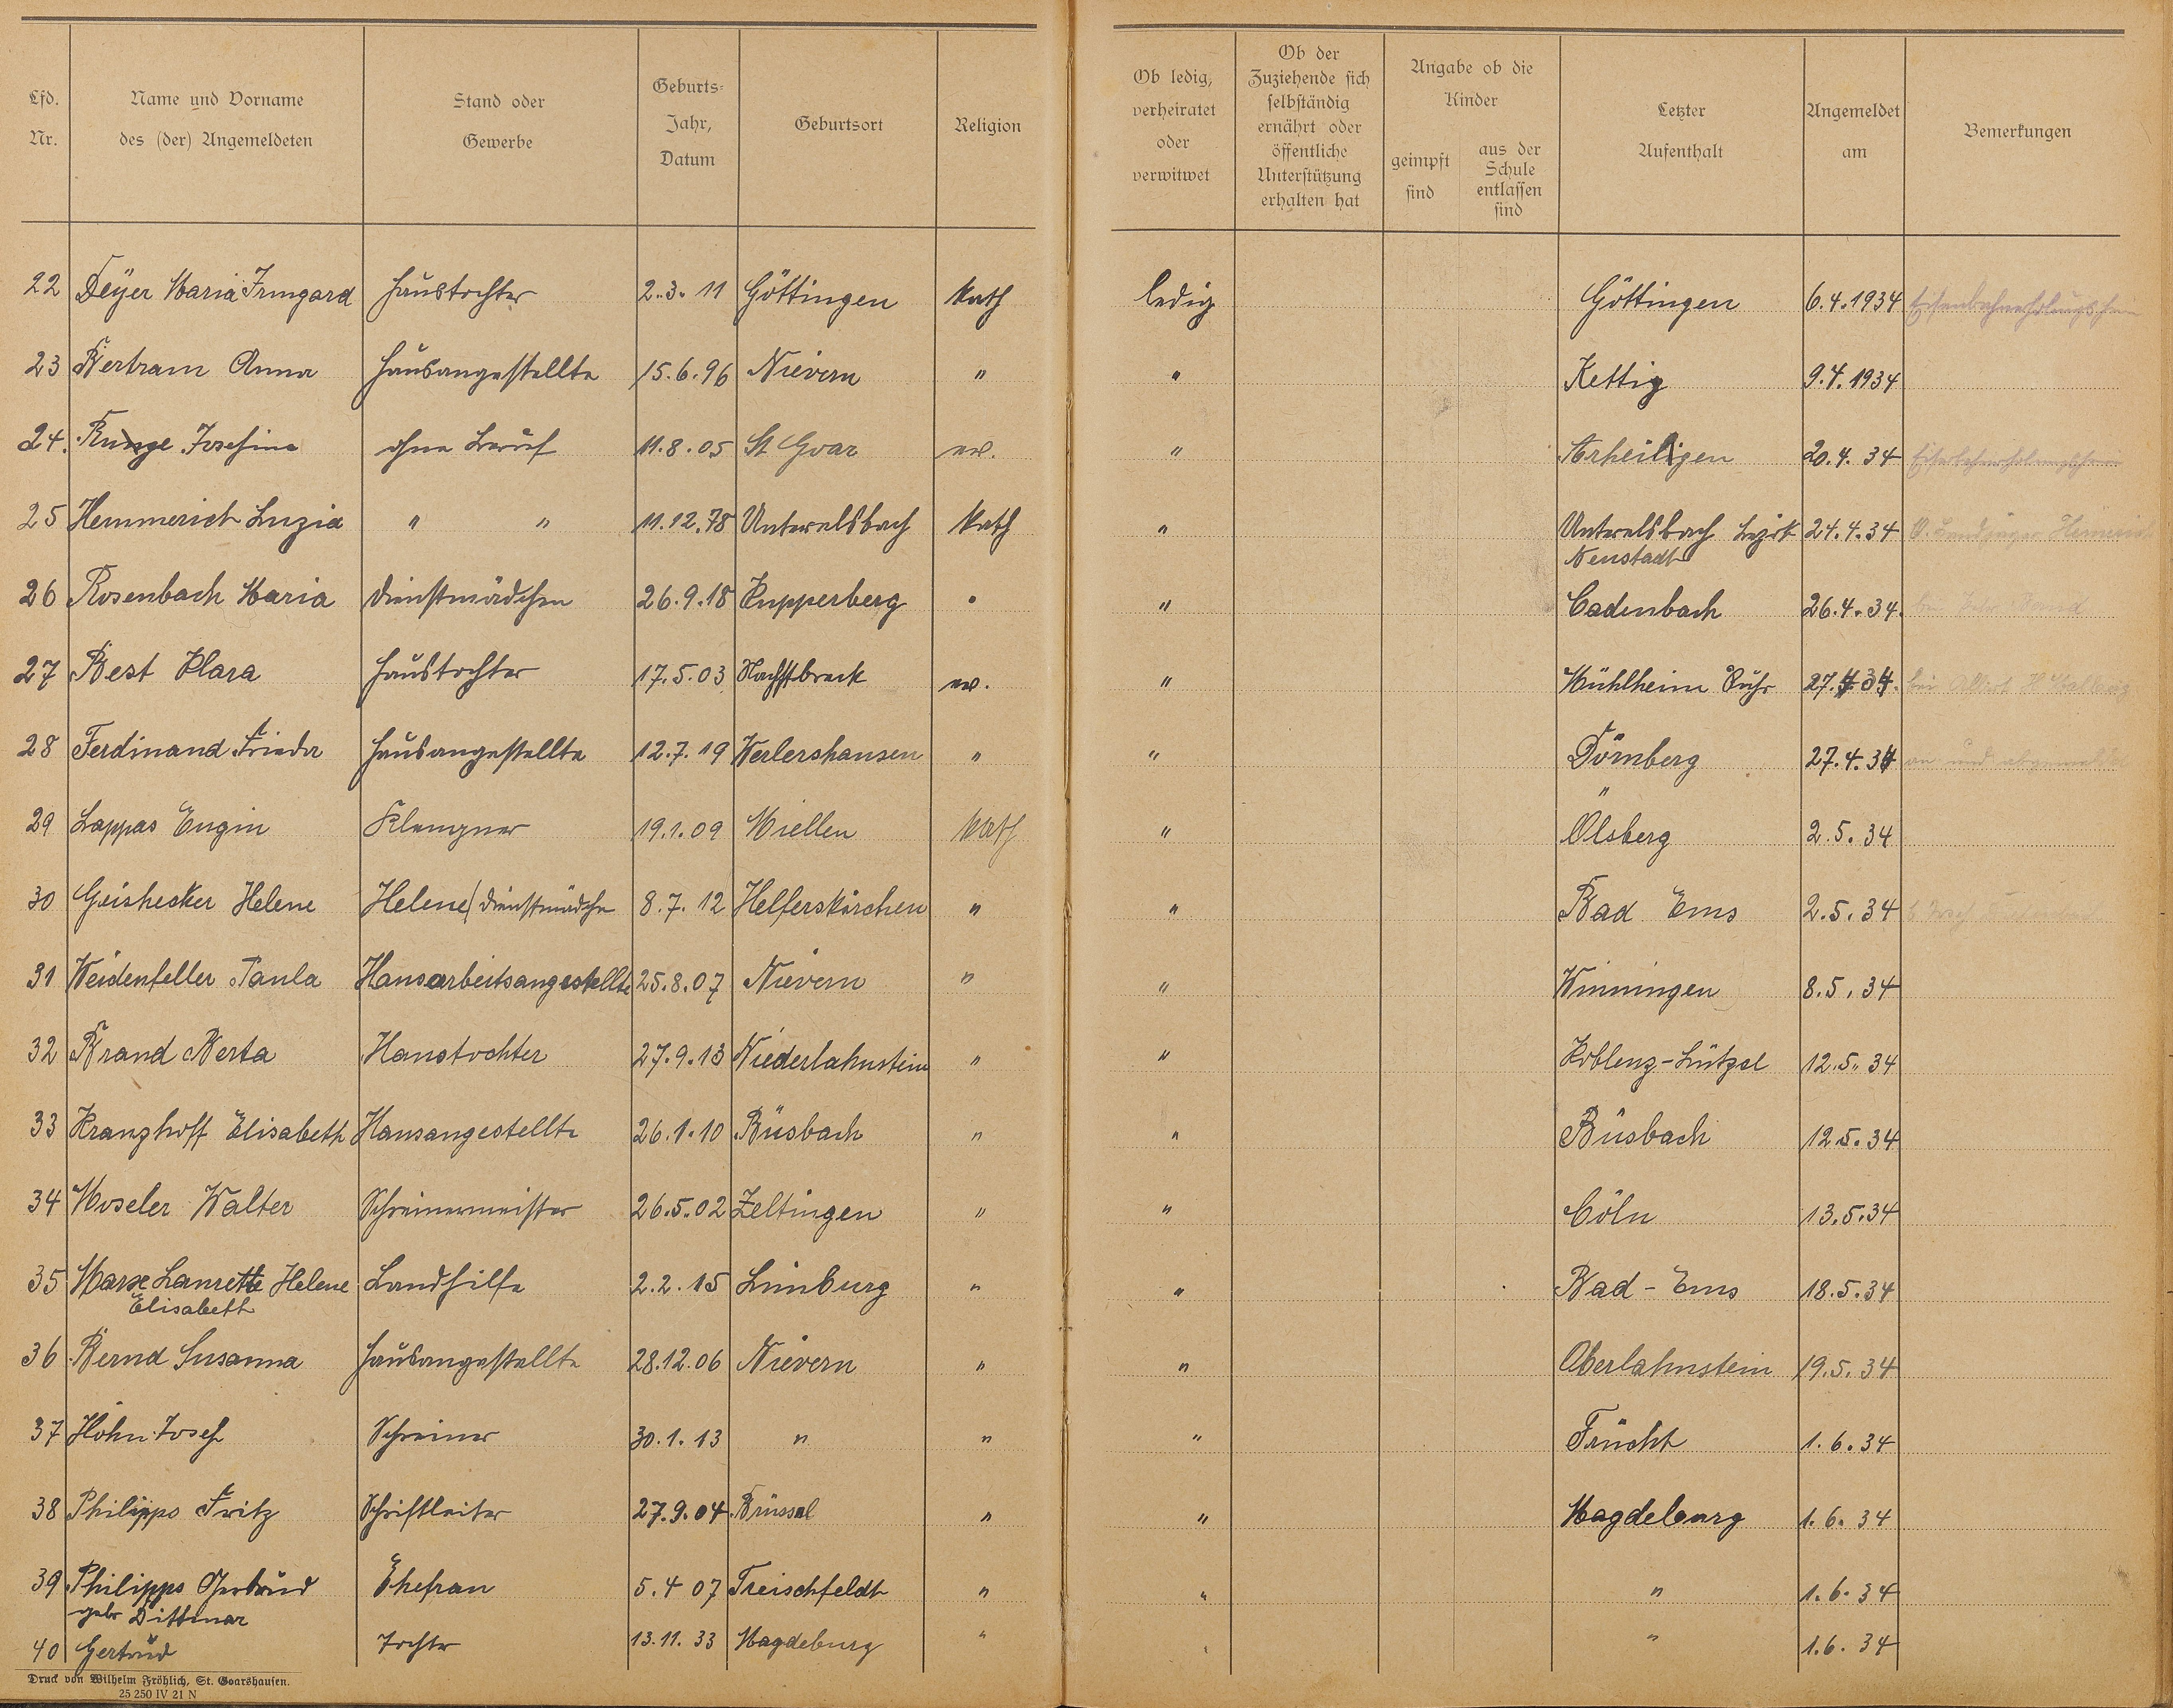 Lfd. Nr. | Name und Vorname des (der) Angemeldeten | Stand oder Gewerbe | Geburts-Jahr, Datum | Geburtsort | Religion | Ob ledig, verheiratet oder verwitwet | Ob der Zuziehende sich selbständig ernährt oder öffentliche Unterstützung erhalten hat | Angabe ob die Kinder geimpft sind | aus der Schule entlassen sind | Letzter Aufenthalt | Angemeldet am | Bemerkungen
22 Deÿer Maria Irmgard Haustochter 2.3.11 Göttingen Kath ledig Göttingen 6.4.1934
23 Bertram Anna Hausangestellte 15.6.96 Nievern " " Kettig 9.4.1934
24. Runge Josefine ohne Beruf 11.8.05 St Goar ev. " Arheiligen 20.4.34
25 Hemmerich Luzia " " 11.12.78 Unterelsbach Kath " Unterelsbach Bezirk Neustadt 24.4.34
26 Rosenbach Maria Dienstmädchen 26.9.18 Rupperberg " " Cadenbach 26.4.34.
27 Best Klara Haustochter 17.5.03 ev. " Mühlheim Ruhr 27.4.34.
28 Ferdinand Frieda Hausangestellte 12.7.19 Werlershausen " " Dörnberg 27.4.34 an und abgemeldet
29 Lappas Eugin Klempner 19.1.09 Miellen Kath " Ölsberg 2.5.34
30 Geishecker Helene Helene/Dienstmädchen 8.7.12 Helferskirchen " " Bad Ems 2.5.34
31 Weidenfeller Paula Hausarbeitsangestellte 25.8.07 Nievern " " Winningen 8.5.34
32 Brand Berta Haustochter 27.9.13 Niederlahnstein " " Koblenz-Lützel 12.5.34
33 Kranzhoff Elisabeth Hausangestellte 26.1.10 Büsbach " " Büsbach 12.5.34
34 Moseler Walter Schreinermeister 26.5.02 Zeltingen " " Cöln 13.5.34
35 Marx Laurette Helene Elisabeth Landhilfe 2.2.15 Limburg " " Bad-Ems 18.5.34
36 Bernd Susanna Hausangestellte 28.12.06 Nievern " " Oberlahnstein 19.5.34
37 Höhn Josef Schreiner 30.1.13 " " " Frücht 1.6.34
38 Philipps Fritz Schriftleiter 27.9.04 Brüssel " " Magdeburg 1.6.34
39 Philipps Gertrud geb Dittmar Ehefrau 5.4 07 Treischfeldt " " " 1.6.34
40 Gertrud Tochter 13.11.33 Magdeburg " " " 1.6.34
Druck von Wilhelm Fröhlich, St. Goarshausen.
25 250 IV 21 N